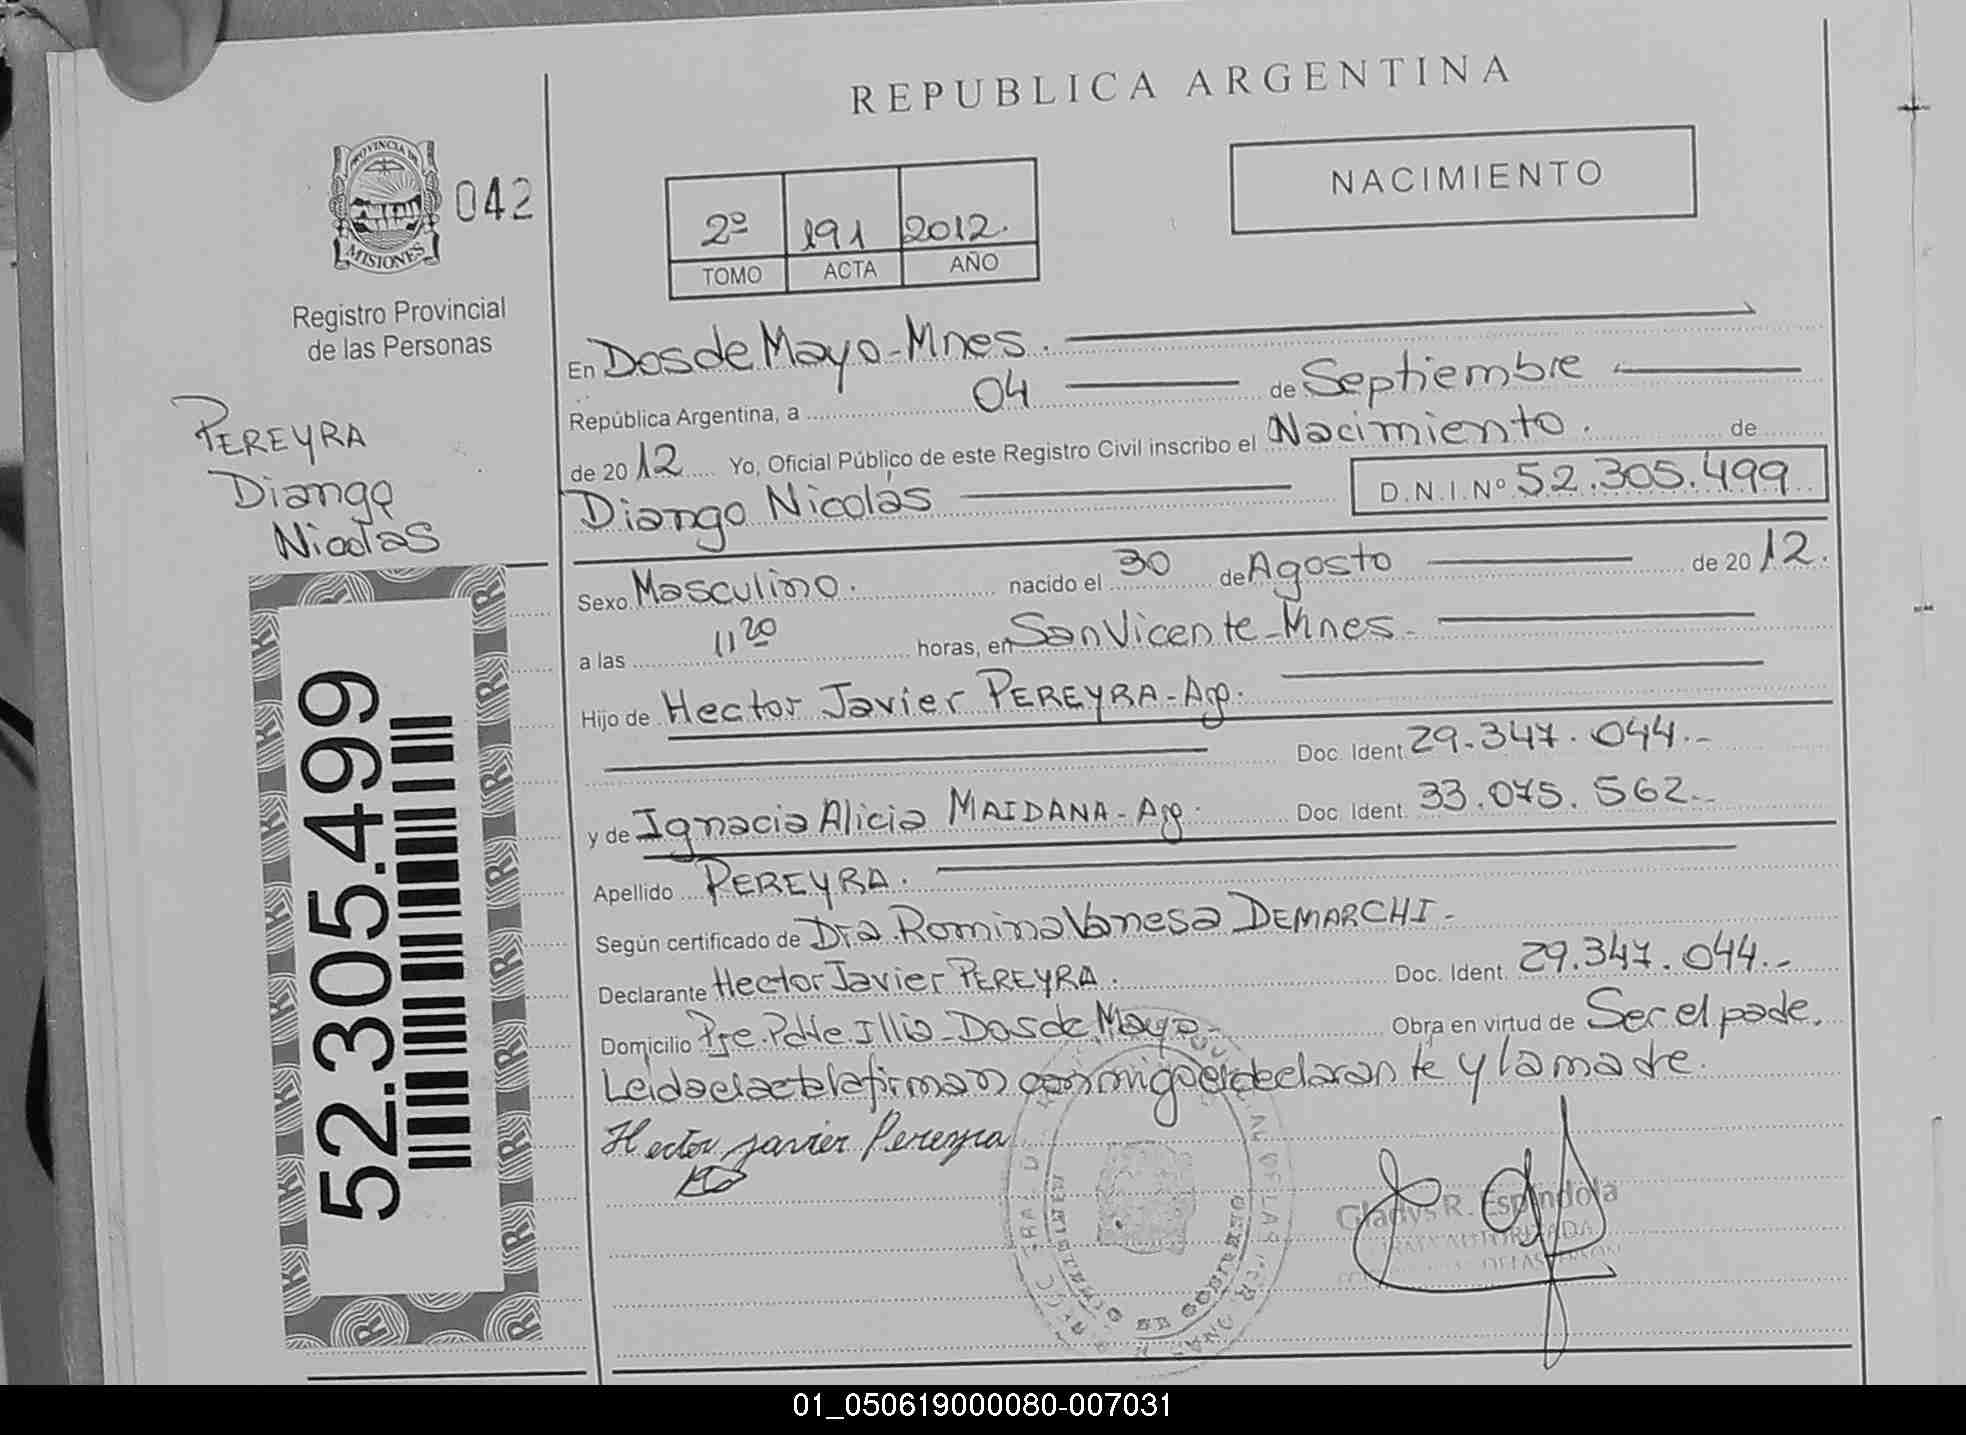 REPUBLICA ARGENTINA
PROVINCIA DE
MISIONES
042
Registro Provincial
de las Personas
2º 191 2012.
TOMO ACTA AÑO
NACIMIENTO
PEREYRA
Diango
Nicolás
52.305.499
En Dos de Mayo - Mnes.
República Argentina, a 04 de Septiembre
de 2012 Yo, Oficial Público de este Registro Civil inscribo el Nacimiento. de
Diango Nicolás D.N.I.Nº 52.305.499
Sexo Masculino. nacido el 30 de Agosto de 2012.
a las 11 20 horas, en San Vicente - Mnes -
Hijo de Hector Javier PEREYRA - Arg.
Doc. Ident. 29.347.044.-
y de Ignacia Alicia MAIDANA - Arg. Doc. Ident. 33.075.562.-
Apellido PEREYRA.
Según certificado de Dra. Romina Vanesa DEMARCHI -
Declarante Hector Javier PEREYRA. Doc. Ident. 29.347.044.-
Domicilio Pje. Pdte. Illia - Dos de Mayo - Obra en virtud de Ser el padre.
Leida el acta la firman conmigo el declarante y la madre.
Hector javier Pereyra
Gladys R. Espindola
01_050619000080-007031